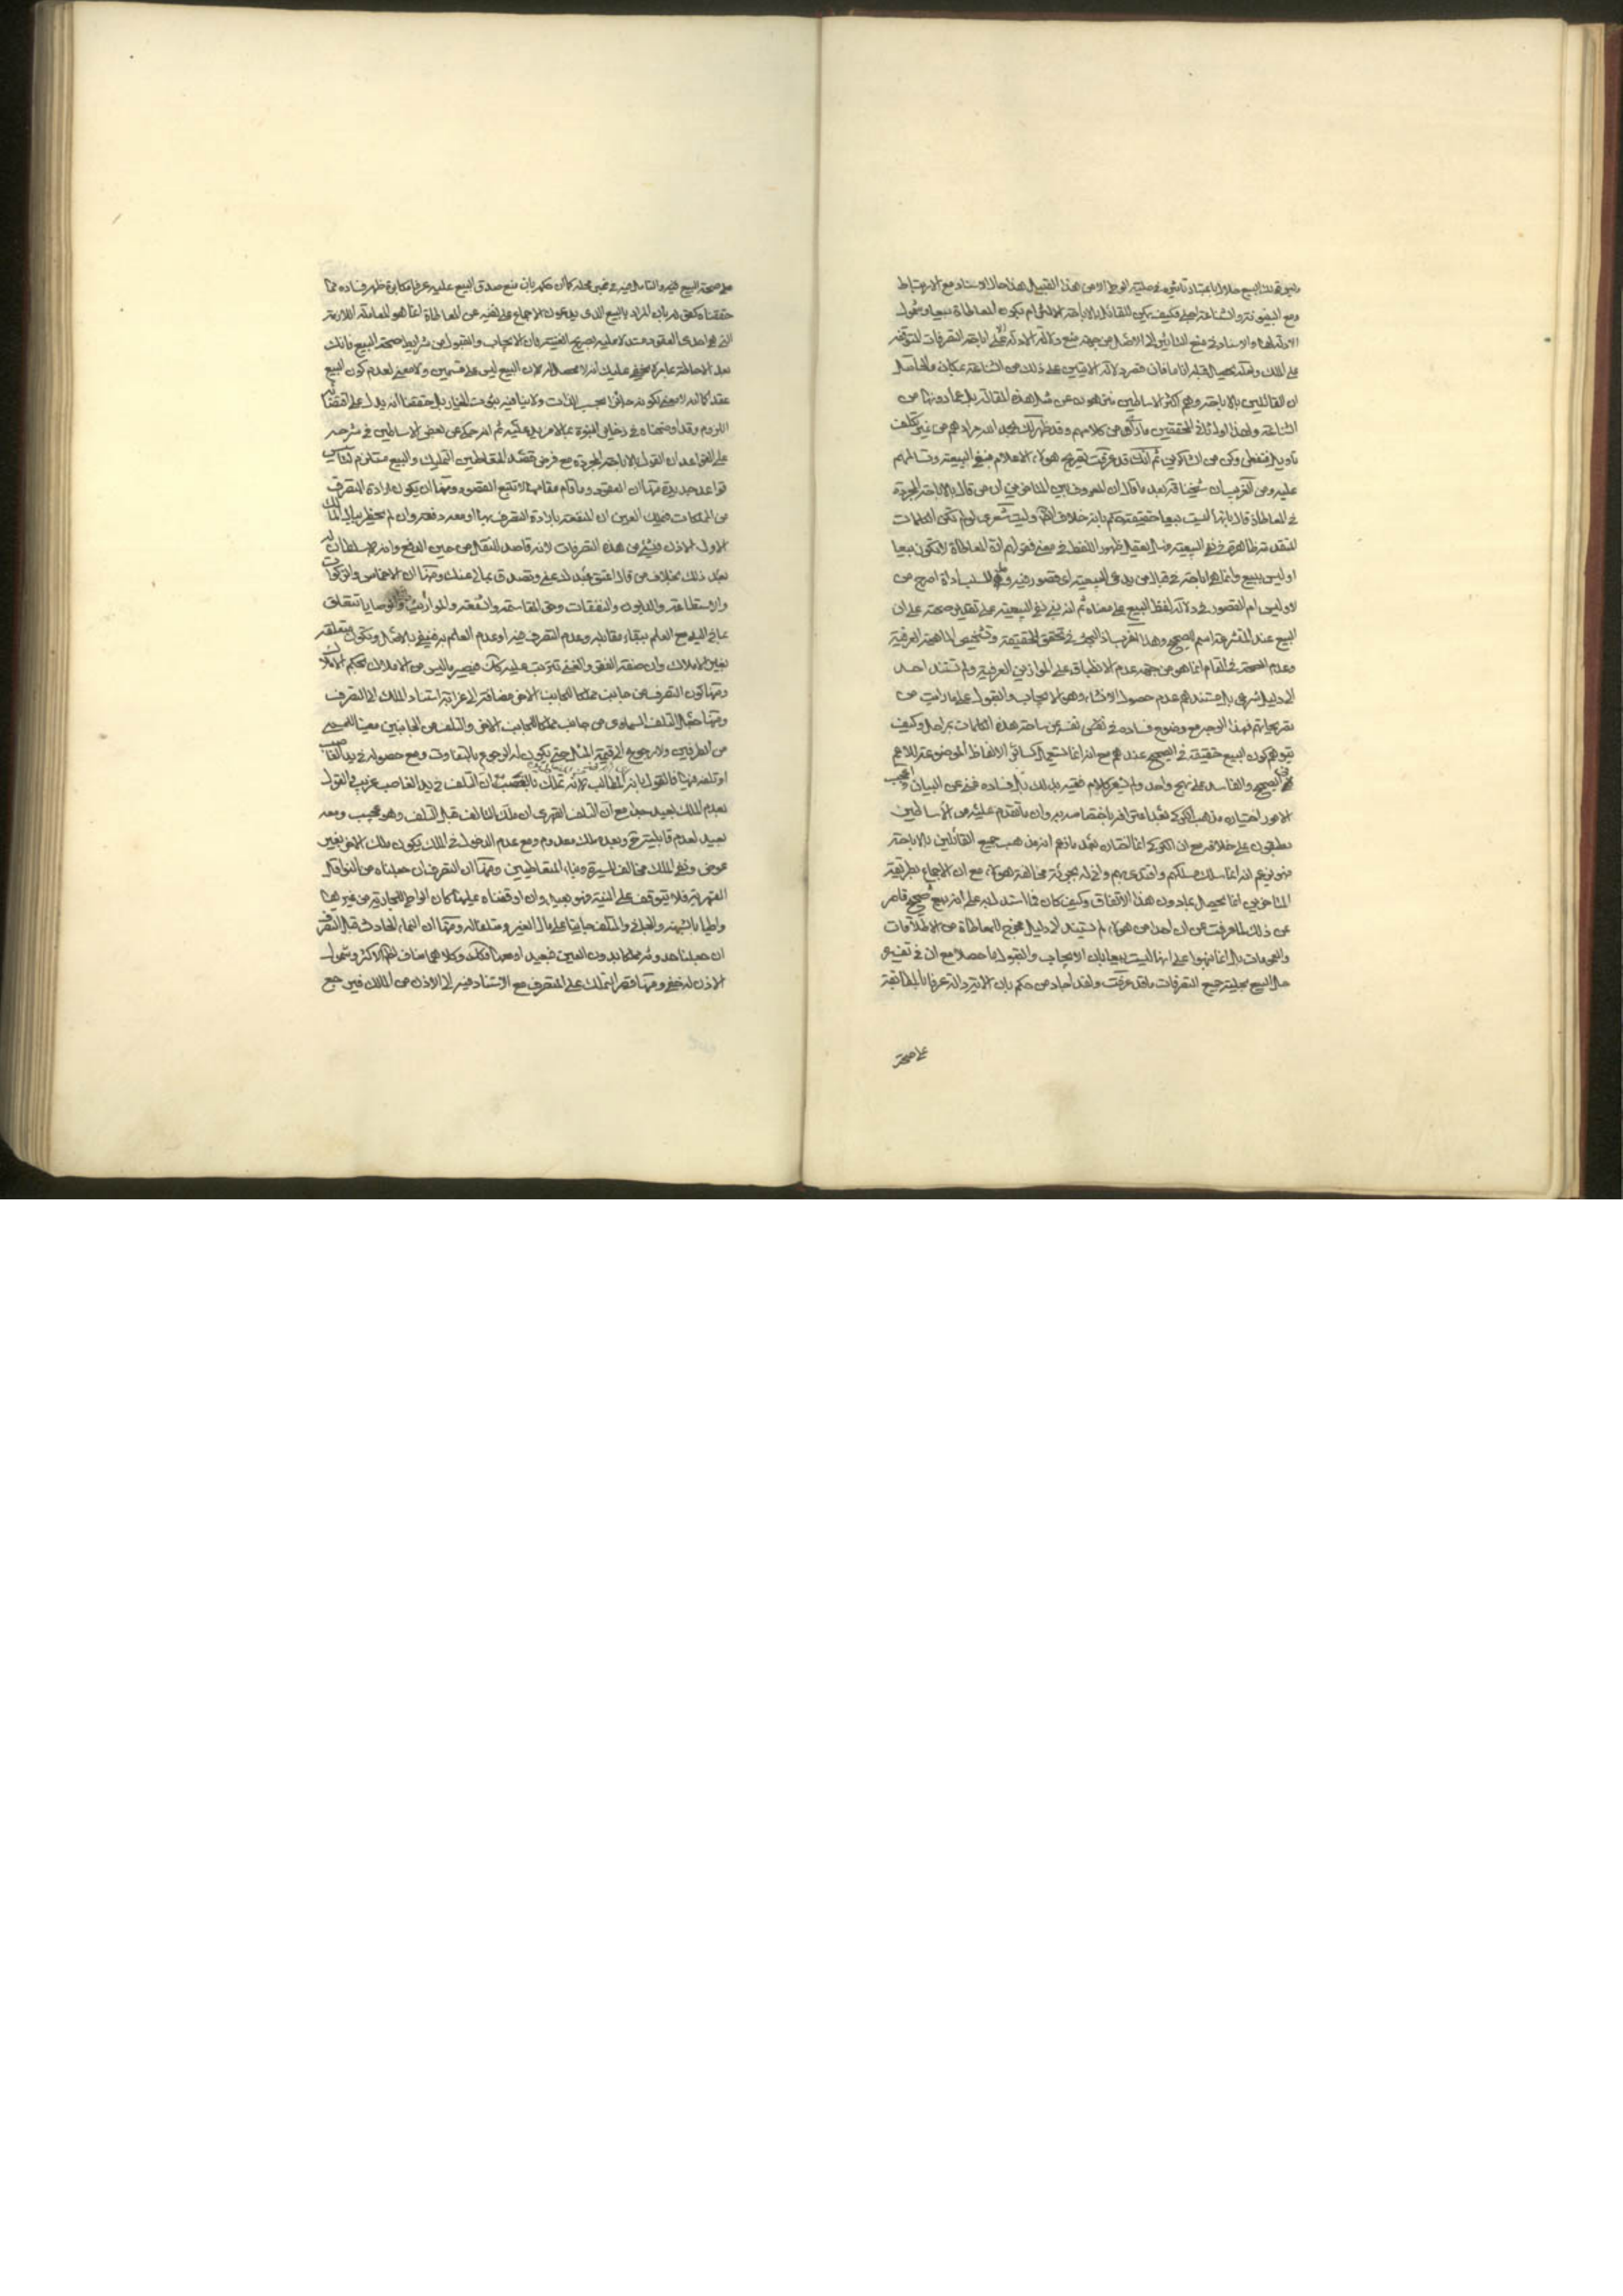 وليس قولك البيع حلال باعتبار تأثيره في حلية الوطى الا من هذا القبيل هذا حال الاسناد مع الارتباط
ومع البينونة والشناعة فكيف يمكن للقائل بالاباحة الالتزام بكون المعاطاة بيعا وشمول
الادلة لها والاستناد في منع التأثير الى الاصل من جهة منع دلالة الادلة على اباحة التصرفات المتوقفة
على الملك
ان القائلين بالاباحة وهم اكثر الاساطين منزهون عن مثل هذه المقالة بل عما دونها من
الشناعة ولهذا اول ثاني المحققين ما رآه من كلامهم وقد ظهر لك بحمد الله مرادهم من غير تكلف
تأويل فتفطن وكن من الشاكرين ثم انك قد عرفت تصريح هؤلاء الاعلام بنفي البيعية وتسالمهم
عليه ومن الغريب ان شيخنا قده بعد ما قال ان المعروف بين المتاخرين ان من قال بالاباحة المجردة
في المعاطاة قال بانها ليست بيعا حقيقة حكم بانه خلاف الظاهر وليت شعري لو لم تكن الكلمات
المتقدمة ظاهرة في نفي البيعية فهل يعقل ظهور اللفظ في معنى فقولهم ان المعاطاة لا تكون بيعا
او ليس ببيع وانما هو اباحة في قبال من يدعي البيعية اي قصور فيه وهل للسلب اداة اصرح من
لا وليس ام القصور في دلالة لفظ البيع على معناه ثم انه بنى نفي البيعية على تقدير صحته على ان
البيع عند المتشرعة اسم للصحيح وهذا اغرب اذ البحث في تحقق الحقيقة وتشخيص الماهية العرفية
وعدم الصحة في المقام انما هو من جهة عدم الانطباق على الموازين العرفية ولم يستند احد
الى دليل شرعي بل مستندهم عدم حصول الانشاء وهو الايجاب والقبول على ما رايت من
تصريحاتهم فهذا الوجه مع وضوح فساده في نفسه بعيد عن ساحة هذه الكلمات بمراحل وكيف
يتوهم كون البيع حقيقة في الصحيح عندهم مع انه انما يستعمل كسائر الالفاظ الموضوعة للاعم
في الصحيح والفاسد على نهج واحد ولم يشعر كلام فقيه بذلك بل فساده غني عن البيان واعجب
الامور اختيار مذهب الكركي بعد اعترافه باختصاصه به وان ما تقدم عليه من الاساطين
مطبقون على خلافه مع ان الكركي انما اختاره بعد ما زعم انه مذهب جميع القائلين بالاباحة
فهو يزعم انه انما سلك مسلكهم واقتدى بهم وانى له بجرئة مخالفة هؤلاء مع ان الاجماع بطريقة
المتاخرين انما يحصل بما دون هذا الاتفاق وكيف كان فما استدل به على انه بيع صحيح قاصر
عن ذلك لما عرفت من ان احدا من هؤلاء لم يستند الى دليل مخرج للمعاطاة من الاطلاقات
والعمومات بل انما نبهوا على انها ليست بيعا بان الايجاب والقبول ما حصلا مع ان في تفسير
حل البيع بحلية جميع التصرفات ما قد عرفت ولقد اجاد من حكم بان الاية دالة عرفا بالمطابقة
على صحة
على صحة البيع فيه والتامل فيه في غير محله كما ان حكمه بان منع صدق البيع عليه عرفا مكابرة ظهر فساده مما
حققناه كحكمه بان المراد بالبيع الذي يدعون الاجماع على نفيه عن المعاطاة انما هو المعاملة اللازمة
التي هي احدى العقود مستدلا عليه بصريح الغنية بان الايجاب والقبول من شرايط صحة البيع فانك
بعد الاحاطة بما مر لا يخفى عليك انه لا محصل له لان البيع ليس على قسمين ولا معنى لعدم كون البيع
عقدا كما انه لا معنى لكونه جائزا بحسب الذات ولا ينافيه ثبوت الخيار بل حققنا انه يدل على اقتضائه
اللزوم وقد اوضحناه في ذخاير النبوة بما لا مزيد عليه ثم انه حكى عن بعض الاساطين في شرحه
على القواعد ان القول بالاباحة المجردة مع فرض قصد المتعاطيين التمليك والبيع مستلزم لتاسيس
قواعد جديدة منها ان العقود وما قام مقامها لا تتبع القصود ومنها ان يكون ارادة التصرف
من المملكات فيملك العين او المنفعة بارادة التصرف بها او معه دفعة وان لم يخطر ببال المالك
الاول الاذن في شئ من هذه التصرفات لانه قاصد للنقل من حين الدفع وانه لا سلطان له
بعد ذلك بخلاف من قال اعتق عبدك عني وتصدق بمالي عنك ومنها ان الاخماس والزكوات
والاستطاعة والديون والنفقات وحق المقاسمة والشفعة والمواريث والوصايا تتعلق
بما في اليد مع العلم ببقاء مقابله وعدم التصرف فيه او عدم العلم به فينفى بالاصل وتكون متعلقة
بغير الاملاك وان صفة الفقر والغنى تترتب عليه كذلك فيصير ما ليس من الاملاك بحكم الاملاك
ومنها كون التصرف من جانب مملكا للجانب الاخر مضافا الى غرابة استناد الملك الى التصرف
ومنها جعل التلف السماوي من جانب مملكا للجانب الاخر والتلف من الجانبين معينا للمسمى
من الطرفين ولا رجوع الى قيمة المثل حتى يكون له الرجوع بالتفاوت ومع حصوله في يد الغاصب
او تلفه فيها فالقول بانه المطالب لانه تملك بالغصب او التلف في يد الغاصب غريب والقول
بعدم الملك بعيد جدا مع ان التلف القهري ان ملك التالف قبل التلف فهو عجيب ومعه
بعيد لعدم قابليته ح وبعده ملك معدوم ومع عدم الدخول في الملك يكون ملك الاخر بغير
عوض ونفي الملك مخالف للسيرة وبناء المتعاطيين ومنها ان التصرف ان جعلناه من النواقل
القهرية فلا يتوقف على النية فهو بعيد وان اوقفناه عليها كان الواطى للجارية من غيرها
واطيا بالشبهة والجاني والمتلف جانيا على مال الغير ومتلفا له ومنها ان النماء الحادث قبل التصرف
ان جعلنا حدوثه مملكا له دون العين فبعيد او معها فكذلك وكلاهما مناف لظاهر الاكثر وشمول
الاذن له خفي ومنها قصر التملك على التصرف مع الاستناد فيه الى الاذن من المالك فيرجع